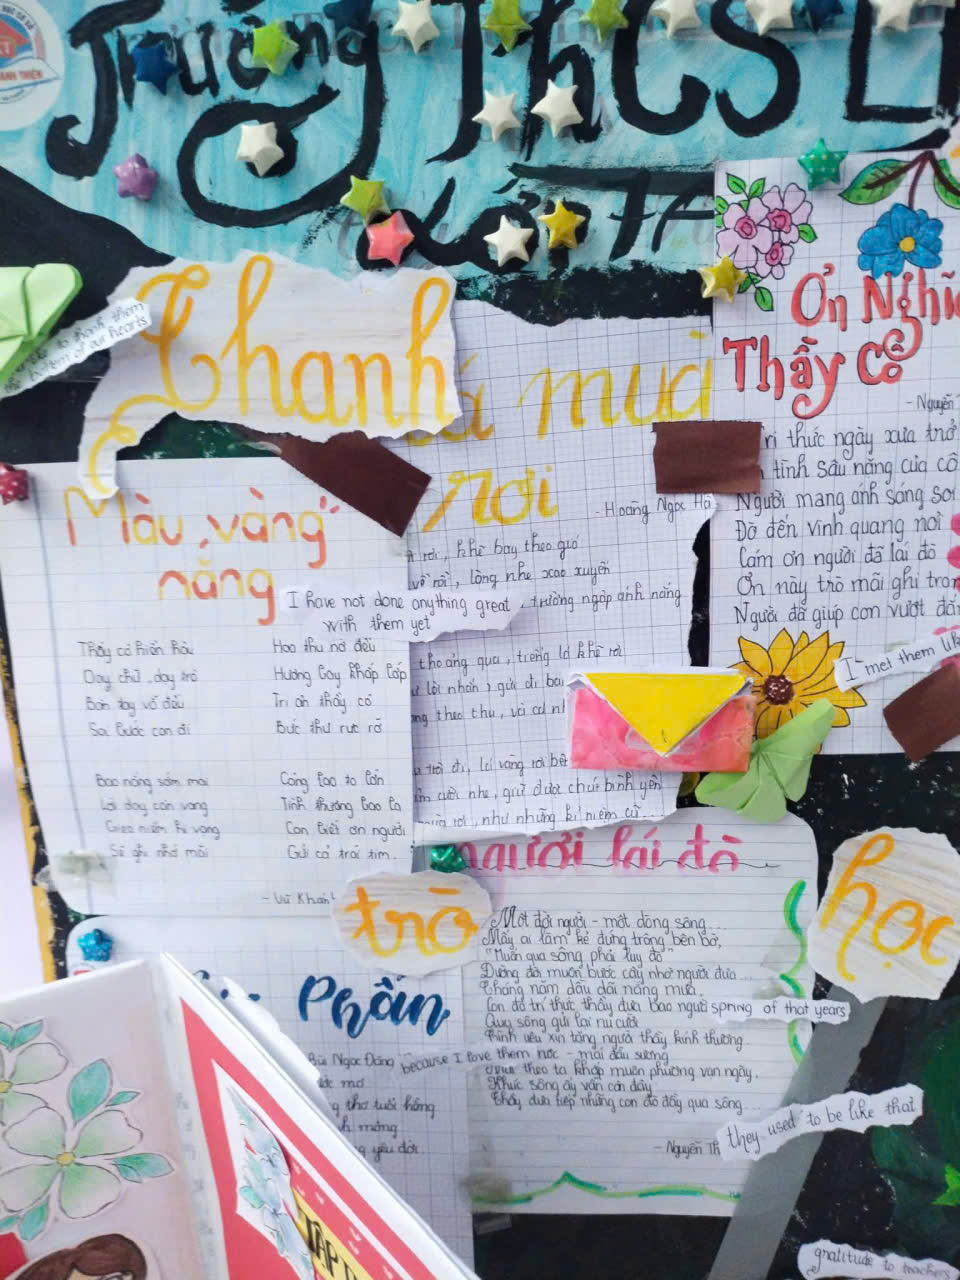 Trường THCS
Lớp 7A
Thanh
lá mùa
rơi
- Hoàng Ngọc Hà
rơi, khẽ bay theo gió
về rồi, lòng nhẹ xao xuyến
trường ngập ánh nắng
thoảng qua, tiếng lá khẽ rơi
lời nhắn, gửi đi
theo thu,
trời đi, lá vàng rơi bên
cười nhẹ, giữ được chút bình yên
rơi, như những kỉ niệm cũ...
to thank them
bottom of our hearts
Màu "vàng"
nắng
Thầy cô hiền hòa
Dạy chữ, dạy trò
Bàn tay vỗ đều
Soi bước con đi
Bao nắng sớm mai
Lời dạy còn vang
Gieo niềm hi vọng
Sẽ ghi nhớ mãi
Hoa thu nở đều
Hương bay khắp lớp
Tri ân thầy cô
Bức thư rực rỡ
Công lao to lớn
Tình thương bao la
Con biết ơn người
Gửi cả trái tim.
- Vũ Khánh
I have not done anything great,
with them yet
Ơn Nghĩa
Thầy Cô
- Nguyễn
tri thức ngày xưa trở
tình sâu nặng của cô
Người mang ánh sáng soi
Đò đến vinh quang nơi
Cám ơn người đã lái đò
Ơn này trò mãi ghi
Người đã giúp con vượt
I met them
trò
học
người lái đò
Một đời người - một dòng sông...
Mấy ai làm kẻ đứng trông bên bờ,
"Muốn qua sông phải lụy đò"
Đường đời muôn bước cậy nhờ người đưa...
Tháng năm dầu dãi nắng mưa,
Con đò trí thức thầy đưa bao người
Qua sông gửi lại nụ cười
Tình yêu xin tặng người thầy kính thương...
mái đầu sương
theo ta khắp muôn phương vạn ngày,
Khúc sông ấy vẫn còn đây
Thầy đưa tiếp những con đò đầy qua sông...
- Nguyễn Th
spring of that years
because I love them
they used to be like that
gratitude to teachers
Phấn
Bùi Ngọc Đăng
mơ
thơ tuổi hồng
mộng
yêu đời.